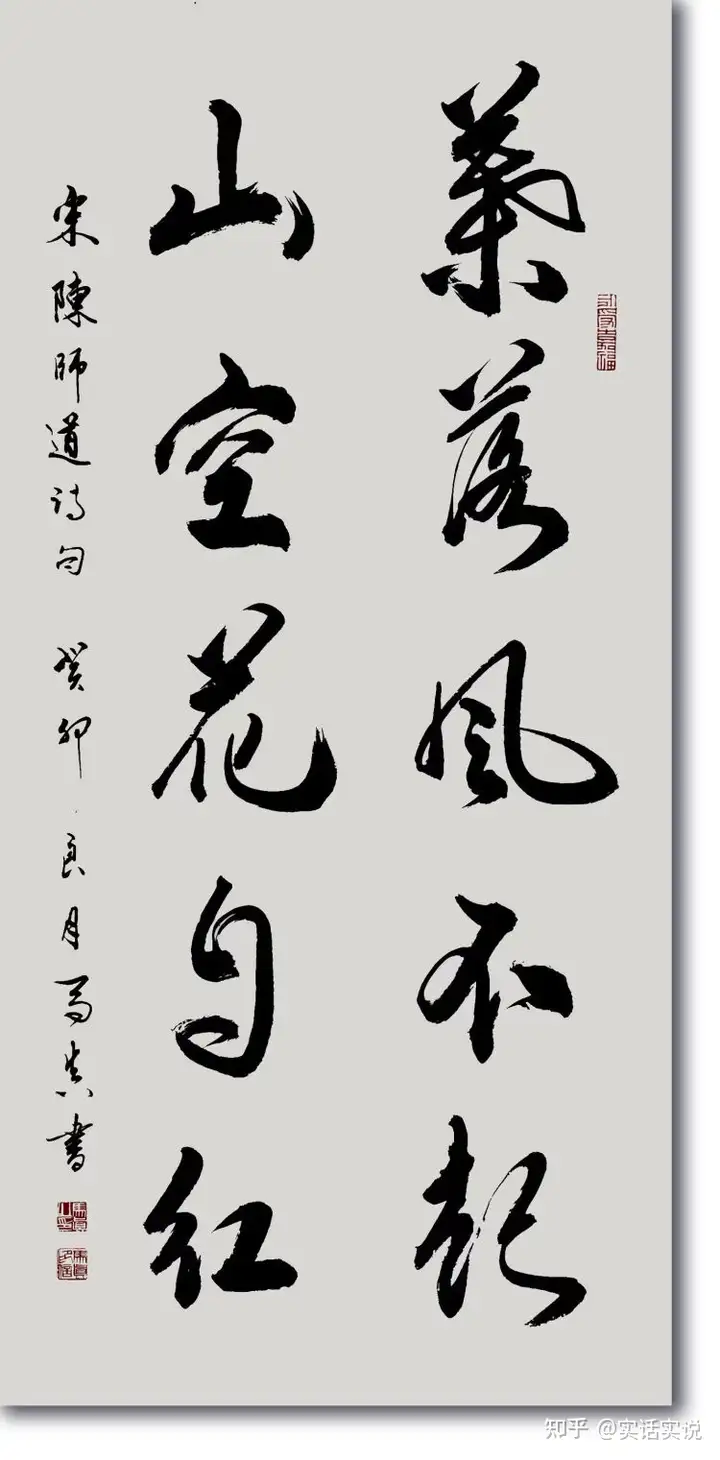 葉落風不起
山空花自紅
宋陳師道詩句 癸卯良月馬真書
知乎 @实话实说